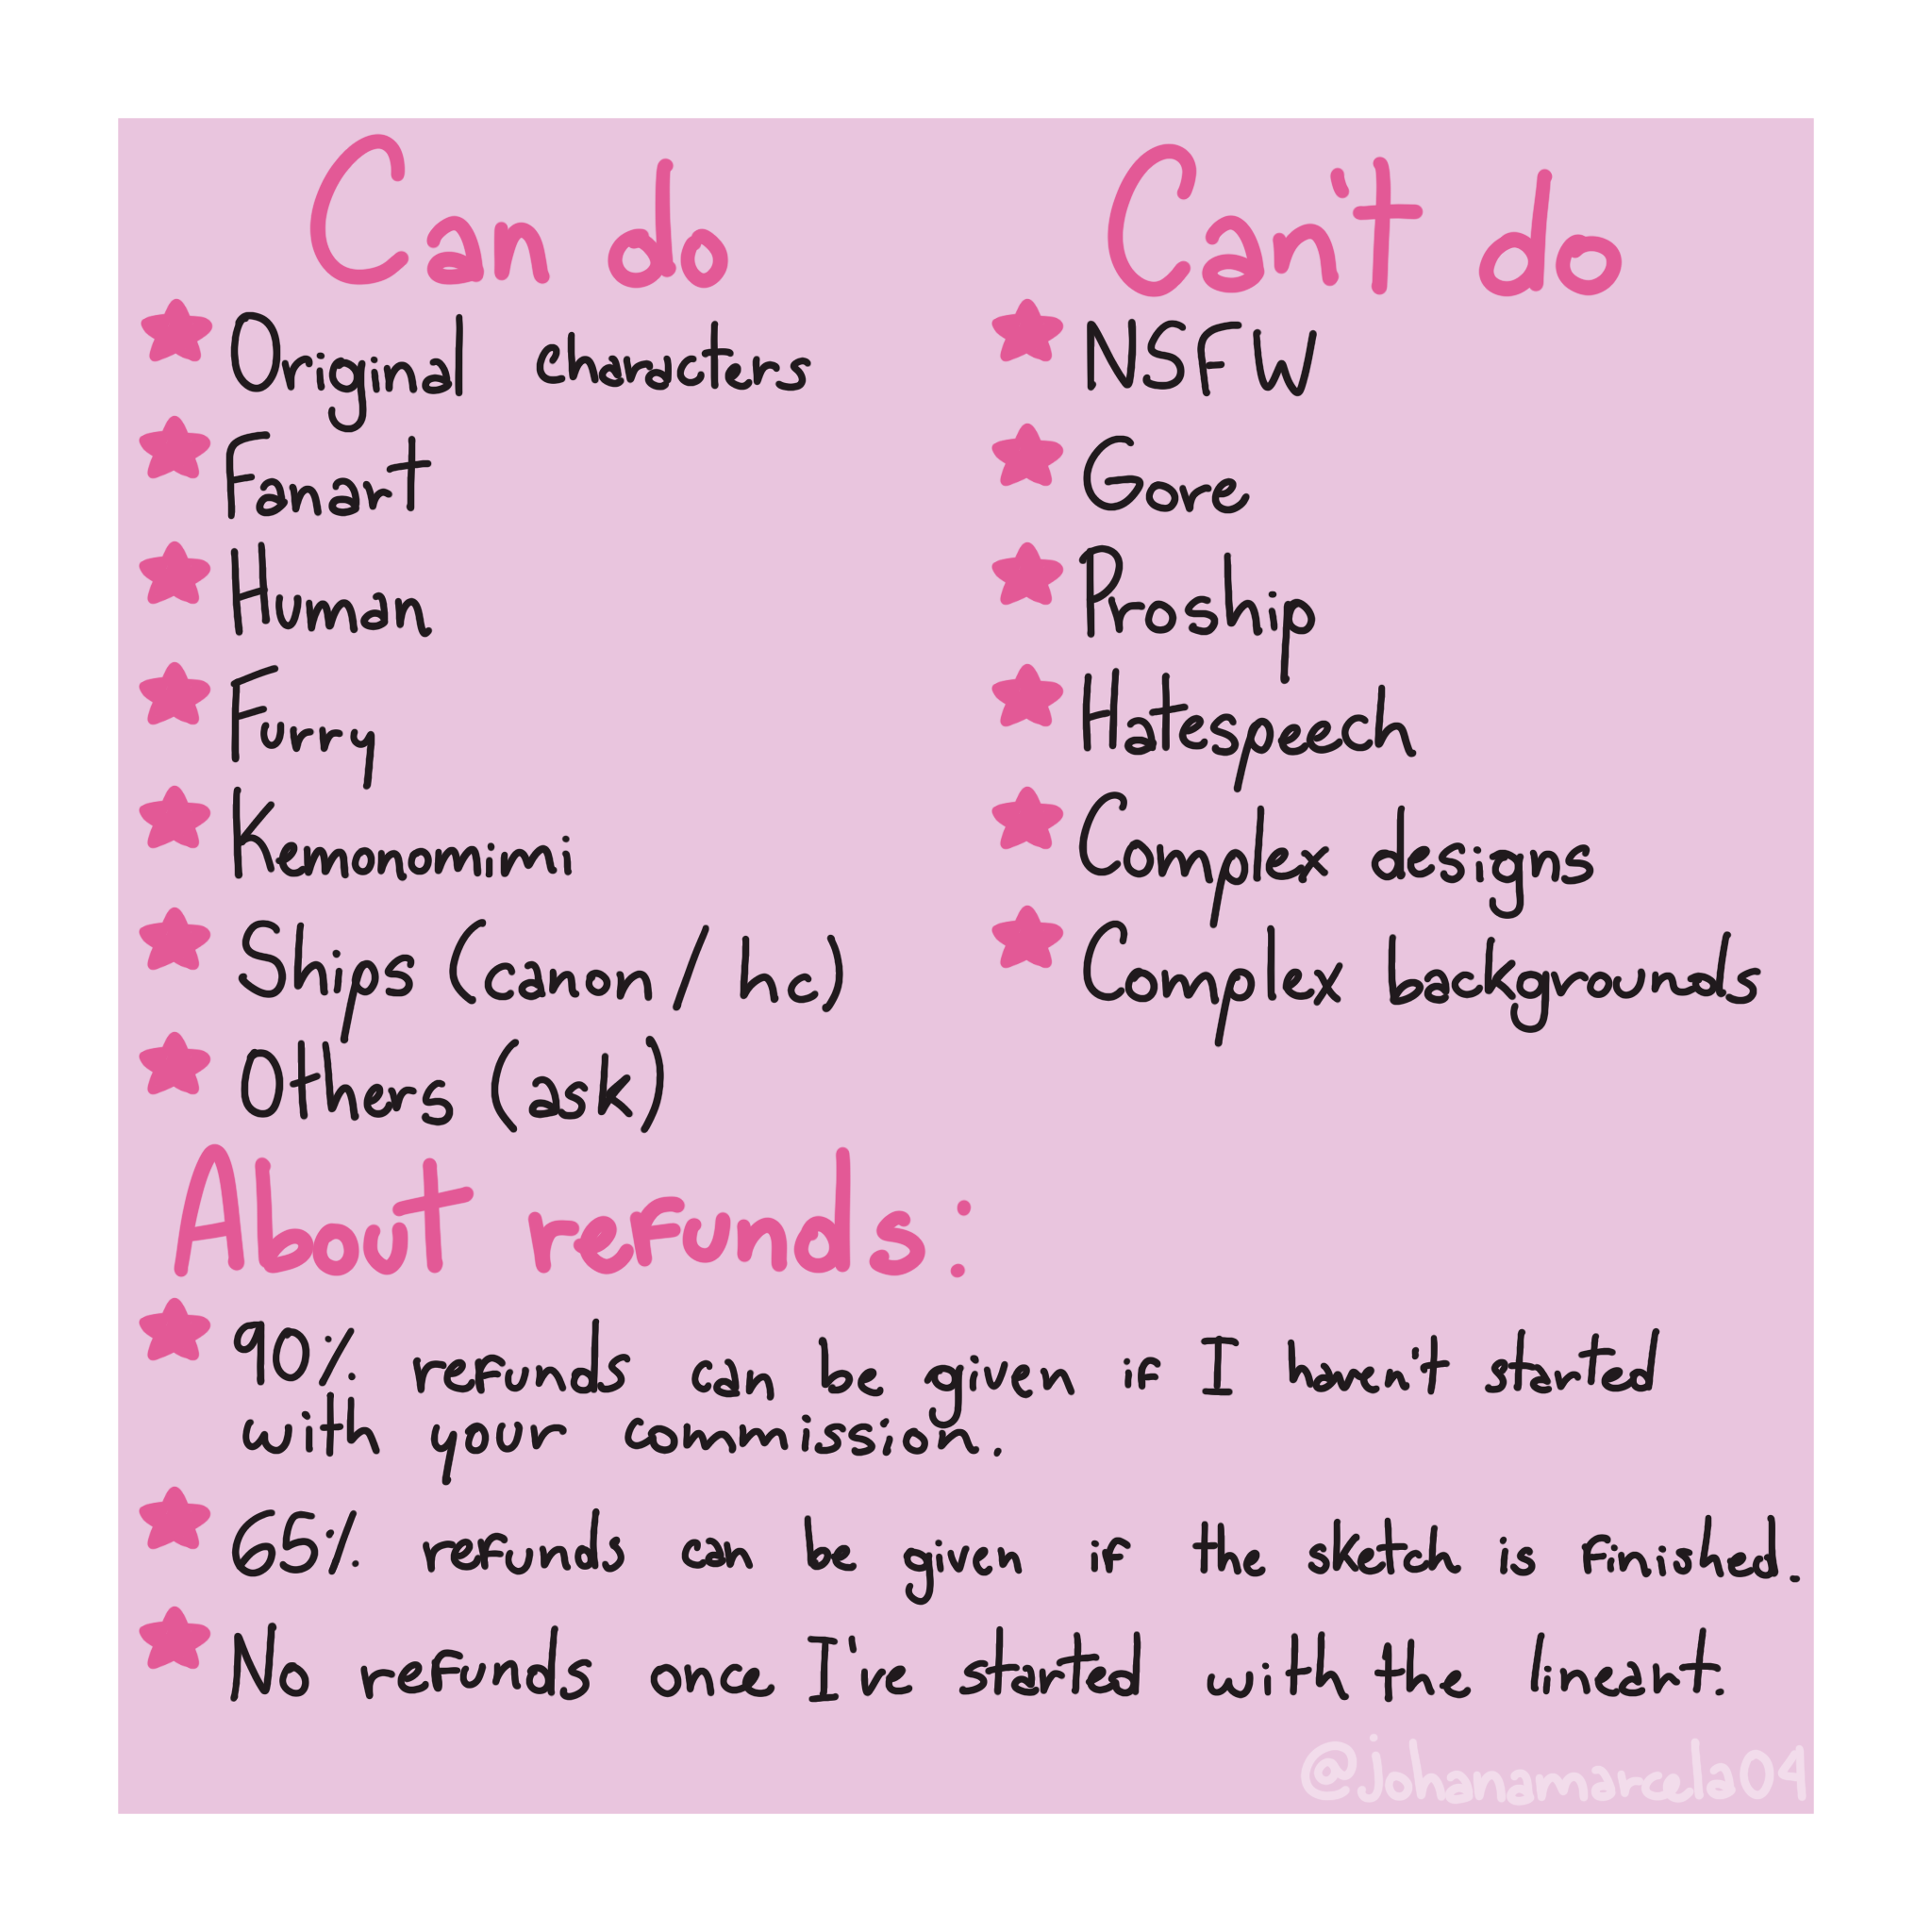 Can do
Original characters
Fanart
Human
Furry
Kemonomimi
Ships (canon/hc)
Others (ask)
Can't do
NSFW
Gore
Proship
Hatespeech
Complex designs
Complex backgrounds
About refunds:
90% refunds can be given if I haven't started
with your commission.
65% refunds can be given if the sketch is finished.
No refunds once I've started with the lineart.
@johanamarcela04